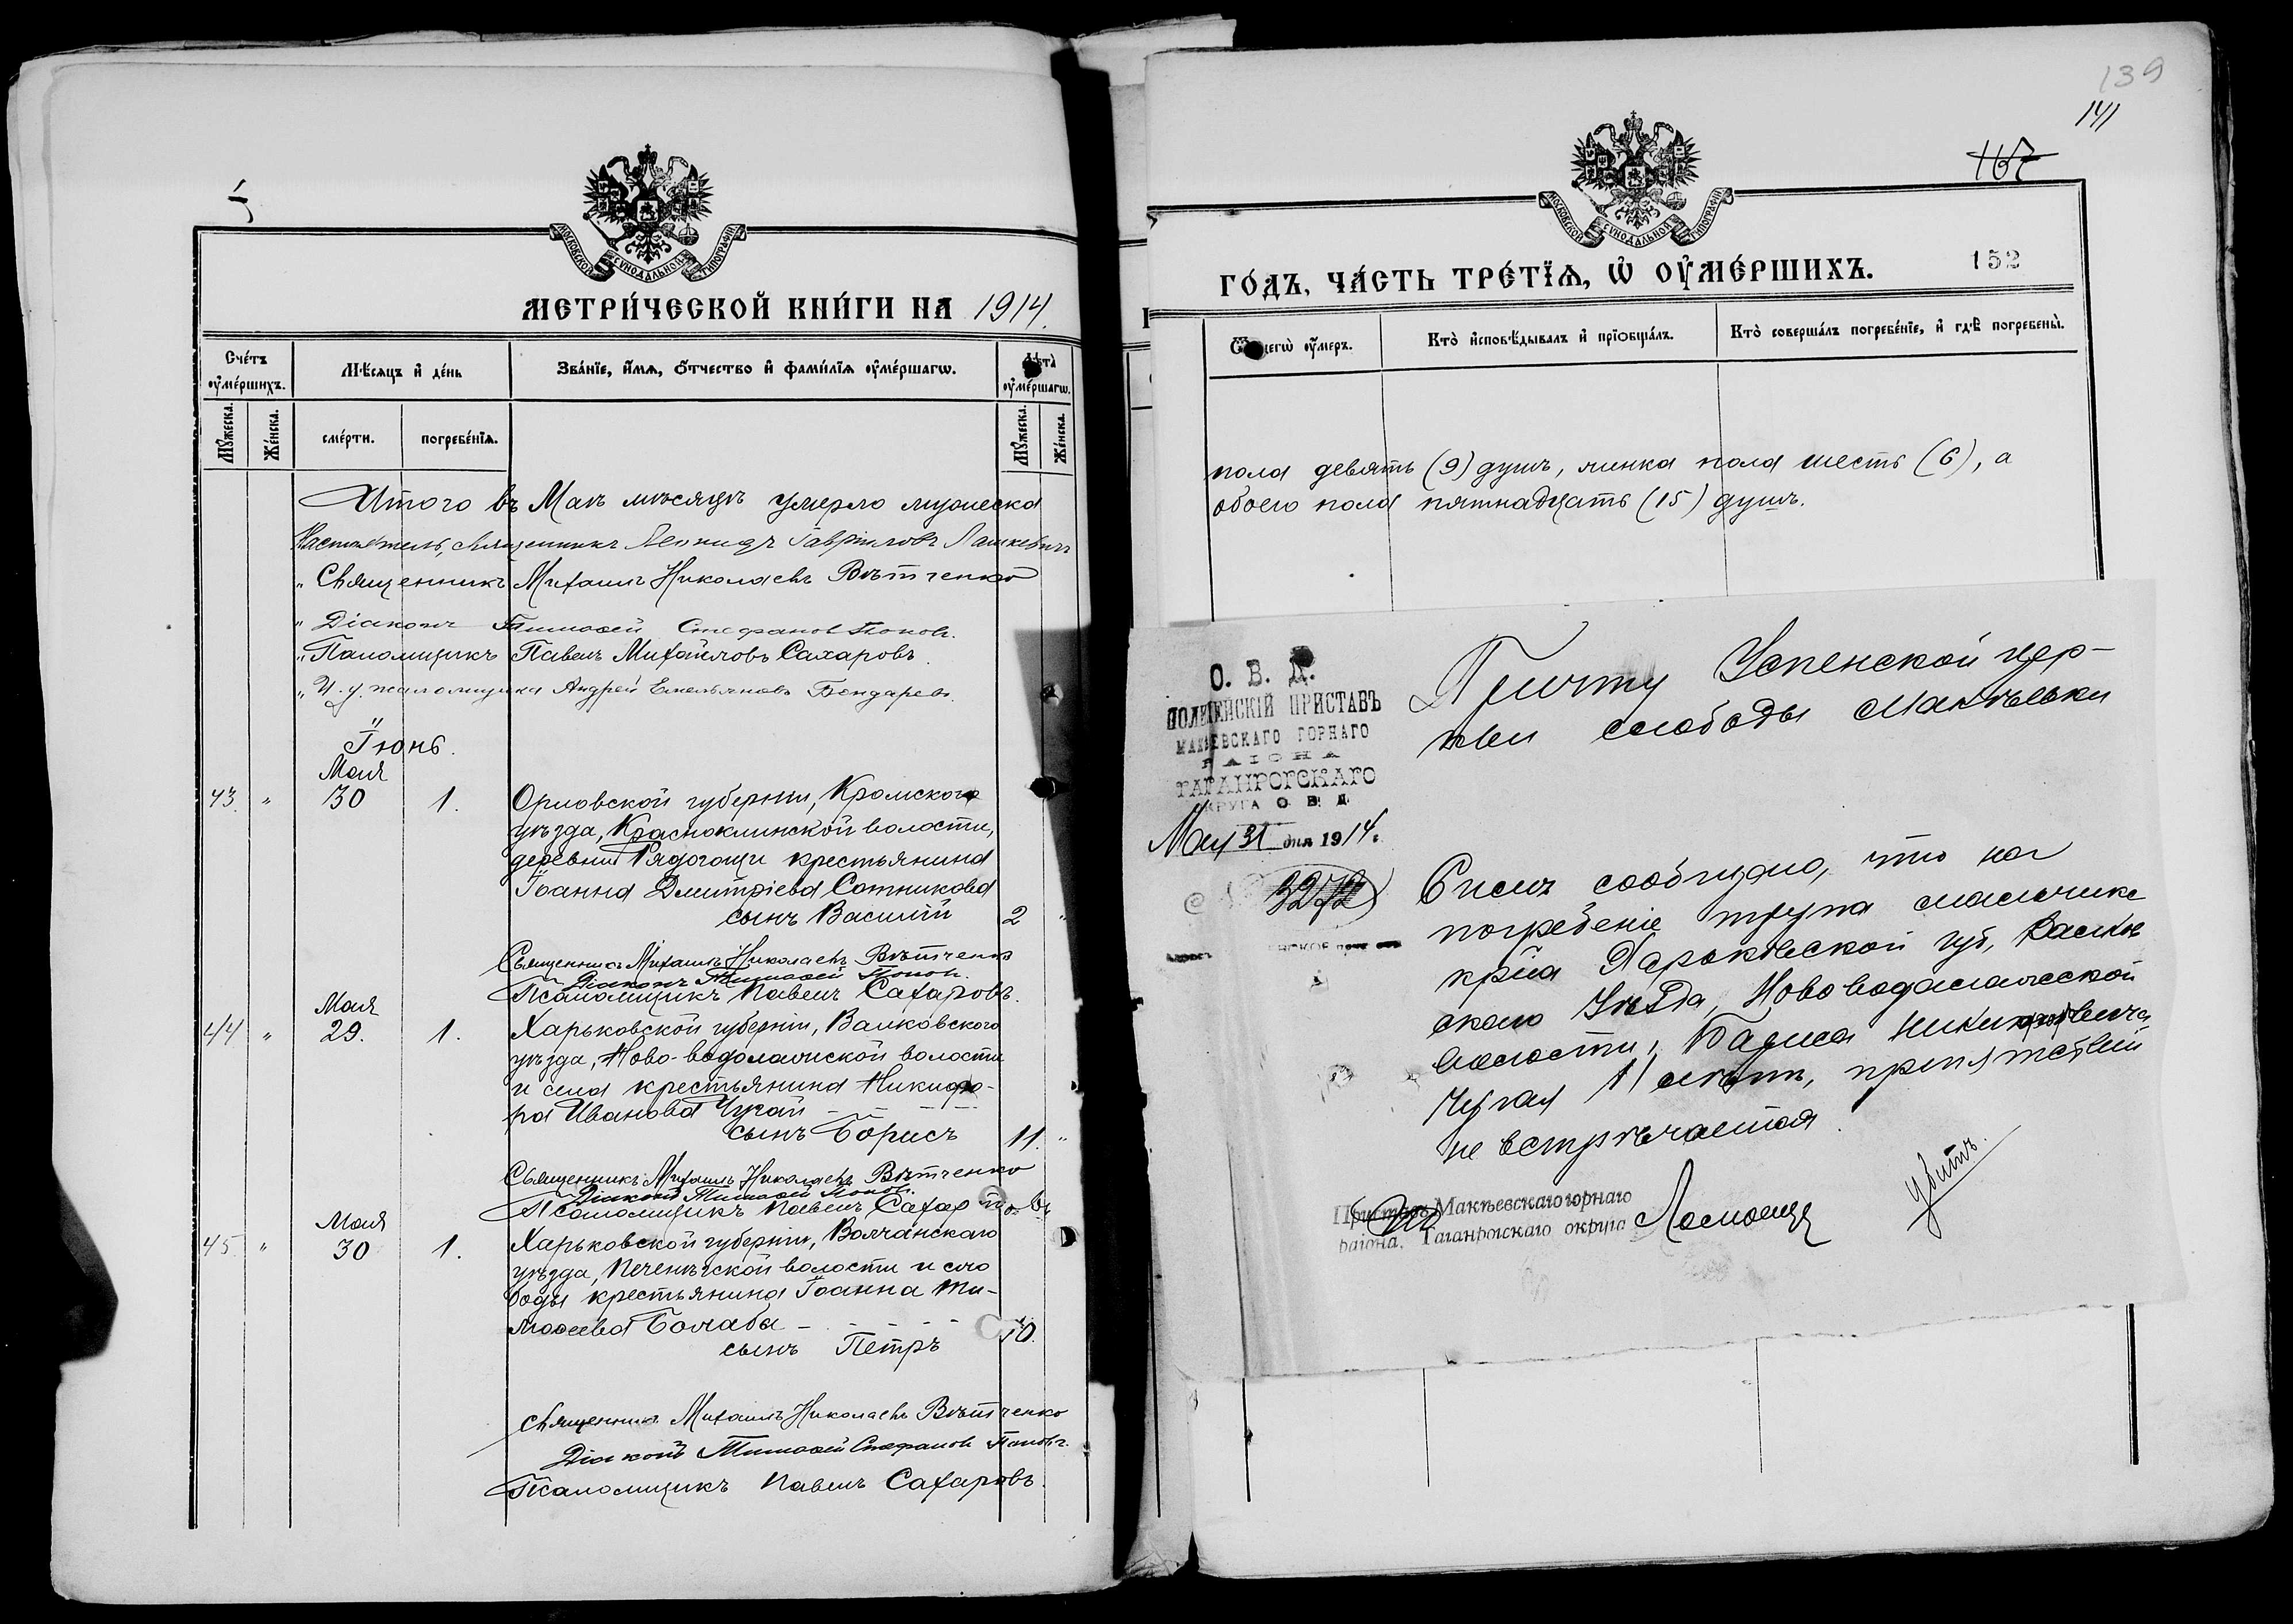 5
МОСКОВСКОЙ СѴНОДАЛЬНОЙ ТИПОГРАФІИ
МЕТРИ́ЧЕСКОЙ КНИ́ГИ НА 1914.
Сче́тъ оу҆ме́ршихъ.
Мѣ́сяцъ и҆ де́нь
Зва́нїе, и҆́мѧ, ѻ҆́тчество и҆ фамѝлїѧ оу҆ме́ршагѡ.
Лѣта̀ оу҆ме́ршагѡ.
Мꙋ́жеска.
Же́нска.
сме́рти.
погребе́нїѧ.
Мꙋ́жеска.
Же́нска.
Итого въ Маѣ мѣсяцѣ умерло мужеска
Настоятель, священникъ Леонидъ Гавріиловъ Лашкевичъ
" Священникъ Михаилъ Николаевъ Вѣтченко
" Діаконъ Тимоѳей Стефановъ Поповъ.
" Псаломщикъ Павелъ Михайловъ Сахаровъ.
" И. д. псаломщика Андрей Емельяновъ Бондаревъ.
Іюнь.
Мая
43. " 30 1. Орловской губерніи, Кромского
уѣзда, Красноклинской волости,
деревни Рядогощи крестьянина
Іоанна Дмитріева Сотникова
сынъ Василій 2 "
Священникъ Михаилъ Николаевъ Вѣтченко
Діаконъ Тимоѳей Поповъ.
Псаломщикъ Павелъ Сахаровъ.
Мая
44 " 29. 1. Харьковской губерніи, Валковского
уѣзда, Ново-водолажской волости
и села крестьянина Никифо-
ра Иванова Чугай
сынъ Борисъ 11. "
Священникъ Михаилъ Николаевъ Вѣтченко
Діаконъ Тимоѳей Поповъ.
Псаломщикъ Павелъ Сахаровъ
Мая
45. " 30 1. Харьковской губерніи, Волчанскаго
уѣзда, Печенѣжской волости и сло
боды крестьянина Іоанна Ти-
моѳеева Болаба
сынъ Петръ 10.
Священникъ Михаилъ Николаевъ Вѣтченко
Діаконъ Тимоѳей Стефановъ Поповъ.
Псаломщикъ Павелъ Сахаровъ.
139
141
167
МОСКОВСКОЙ СѴНОДАЛЬНОЙ ТИПОГРАФІИ
ГО́ДЪ, ЧА́СТЬ ТРЕ́ТЇѦ, Ѡ҆ ОУ҆МЕ́РШИХЪ.
152
Ѿ чегѡ̀ оу҆́меръ.
Кто̀ и҆сповѣ́дывалъ и҆ прїѡбща́лъ.
Кто̀ соверша́лъ погребе́нїе, и҆ гдѣ̀ погребены̀.
пола девять (9) душъ, женска пола шесть (6), а
обоего пола пятнадцать (15) душъ.
О. В. Д.
ПОЛИЦЕЙСКІЙ ПРИСТАВЪ
МАКѢЕВСКАГО ГОРНАГО
РАІОНА
ТАГАНРОГСКАГО
ОКРУГА О. В. Д.
Мая 31 дня 1914.
3272
Причту Успенской цер-
кви слободы Макѣевки
Симъ сообщаю, что на
погребеніе трупа мальчика
кр-на Харьковской губ, Валков
скаго Уѣзда, Ново водолажской
волости, Бориса Никифоровича
Чугая 11 лѣтъ, препятствій
не встрѣчается.
Приставъ Макѣевскаго горнаго
раіона, Таганрогскаго округа
убитъ.